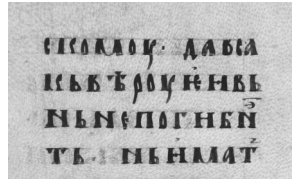 СКОМОУ· ДАВСА
КЪВѢРОУѨИВЬ
НЬНЕПОГЫБН
ТЬ· НЬИМАТ